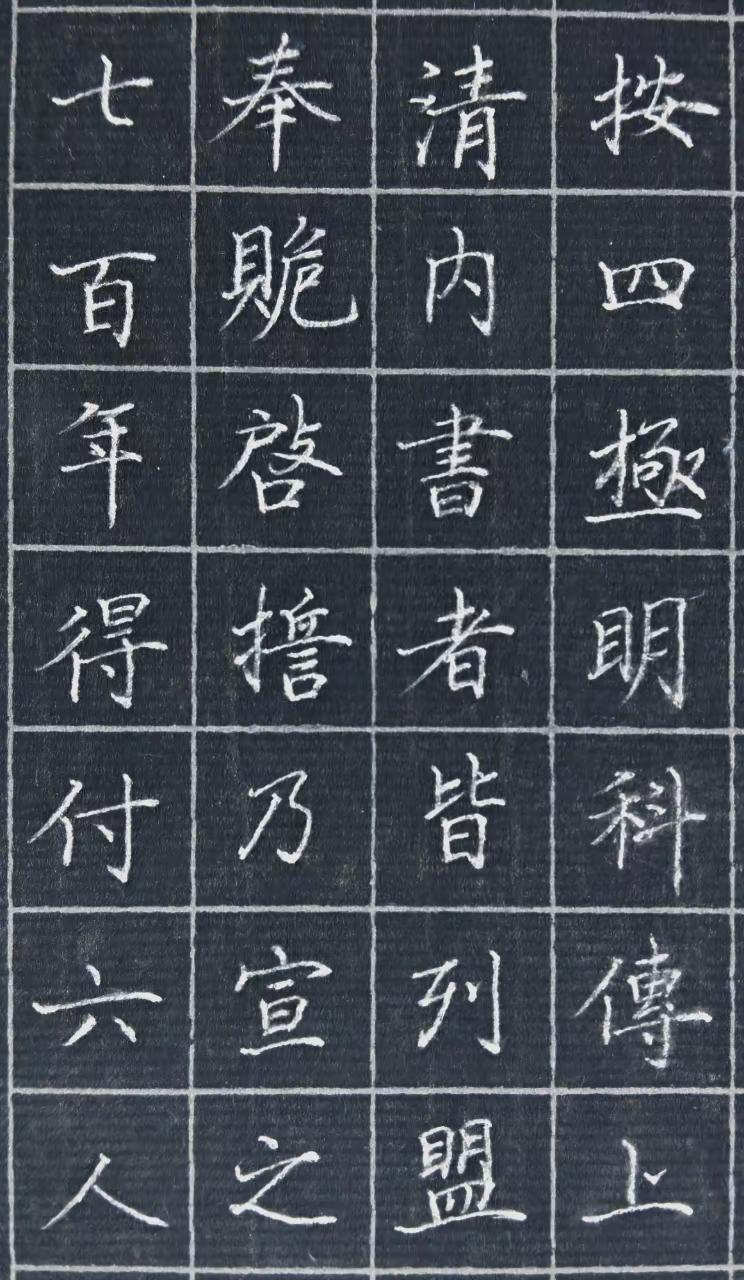 按四極明科傳上
清内書者皆列盟
奉䝿啓誓乃宣之
七百年得付六人